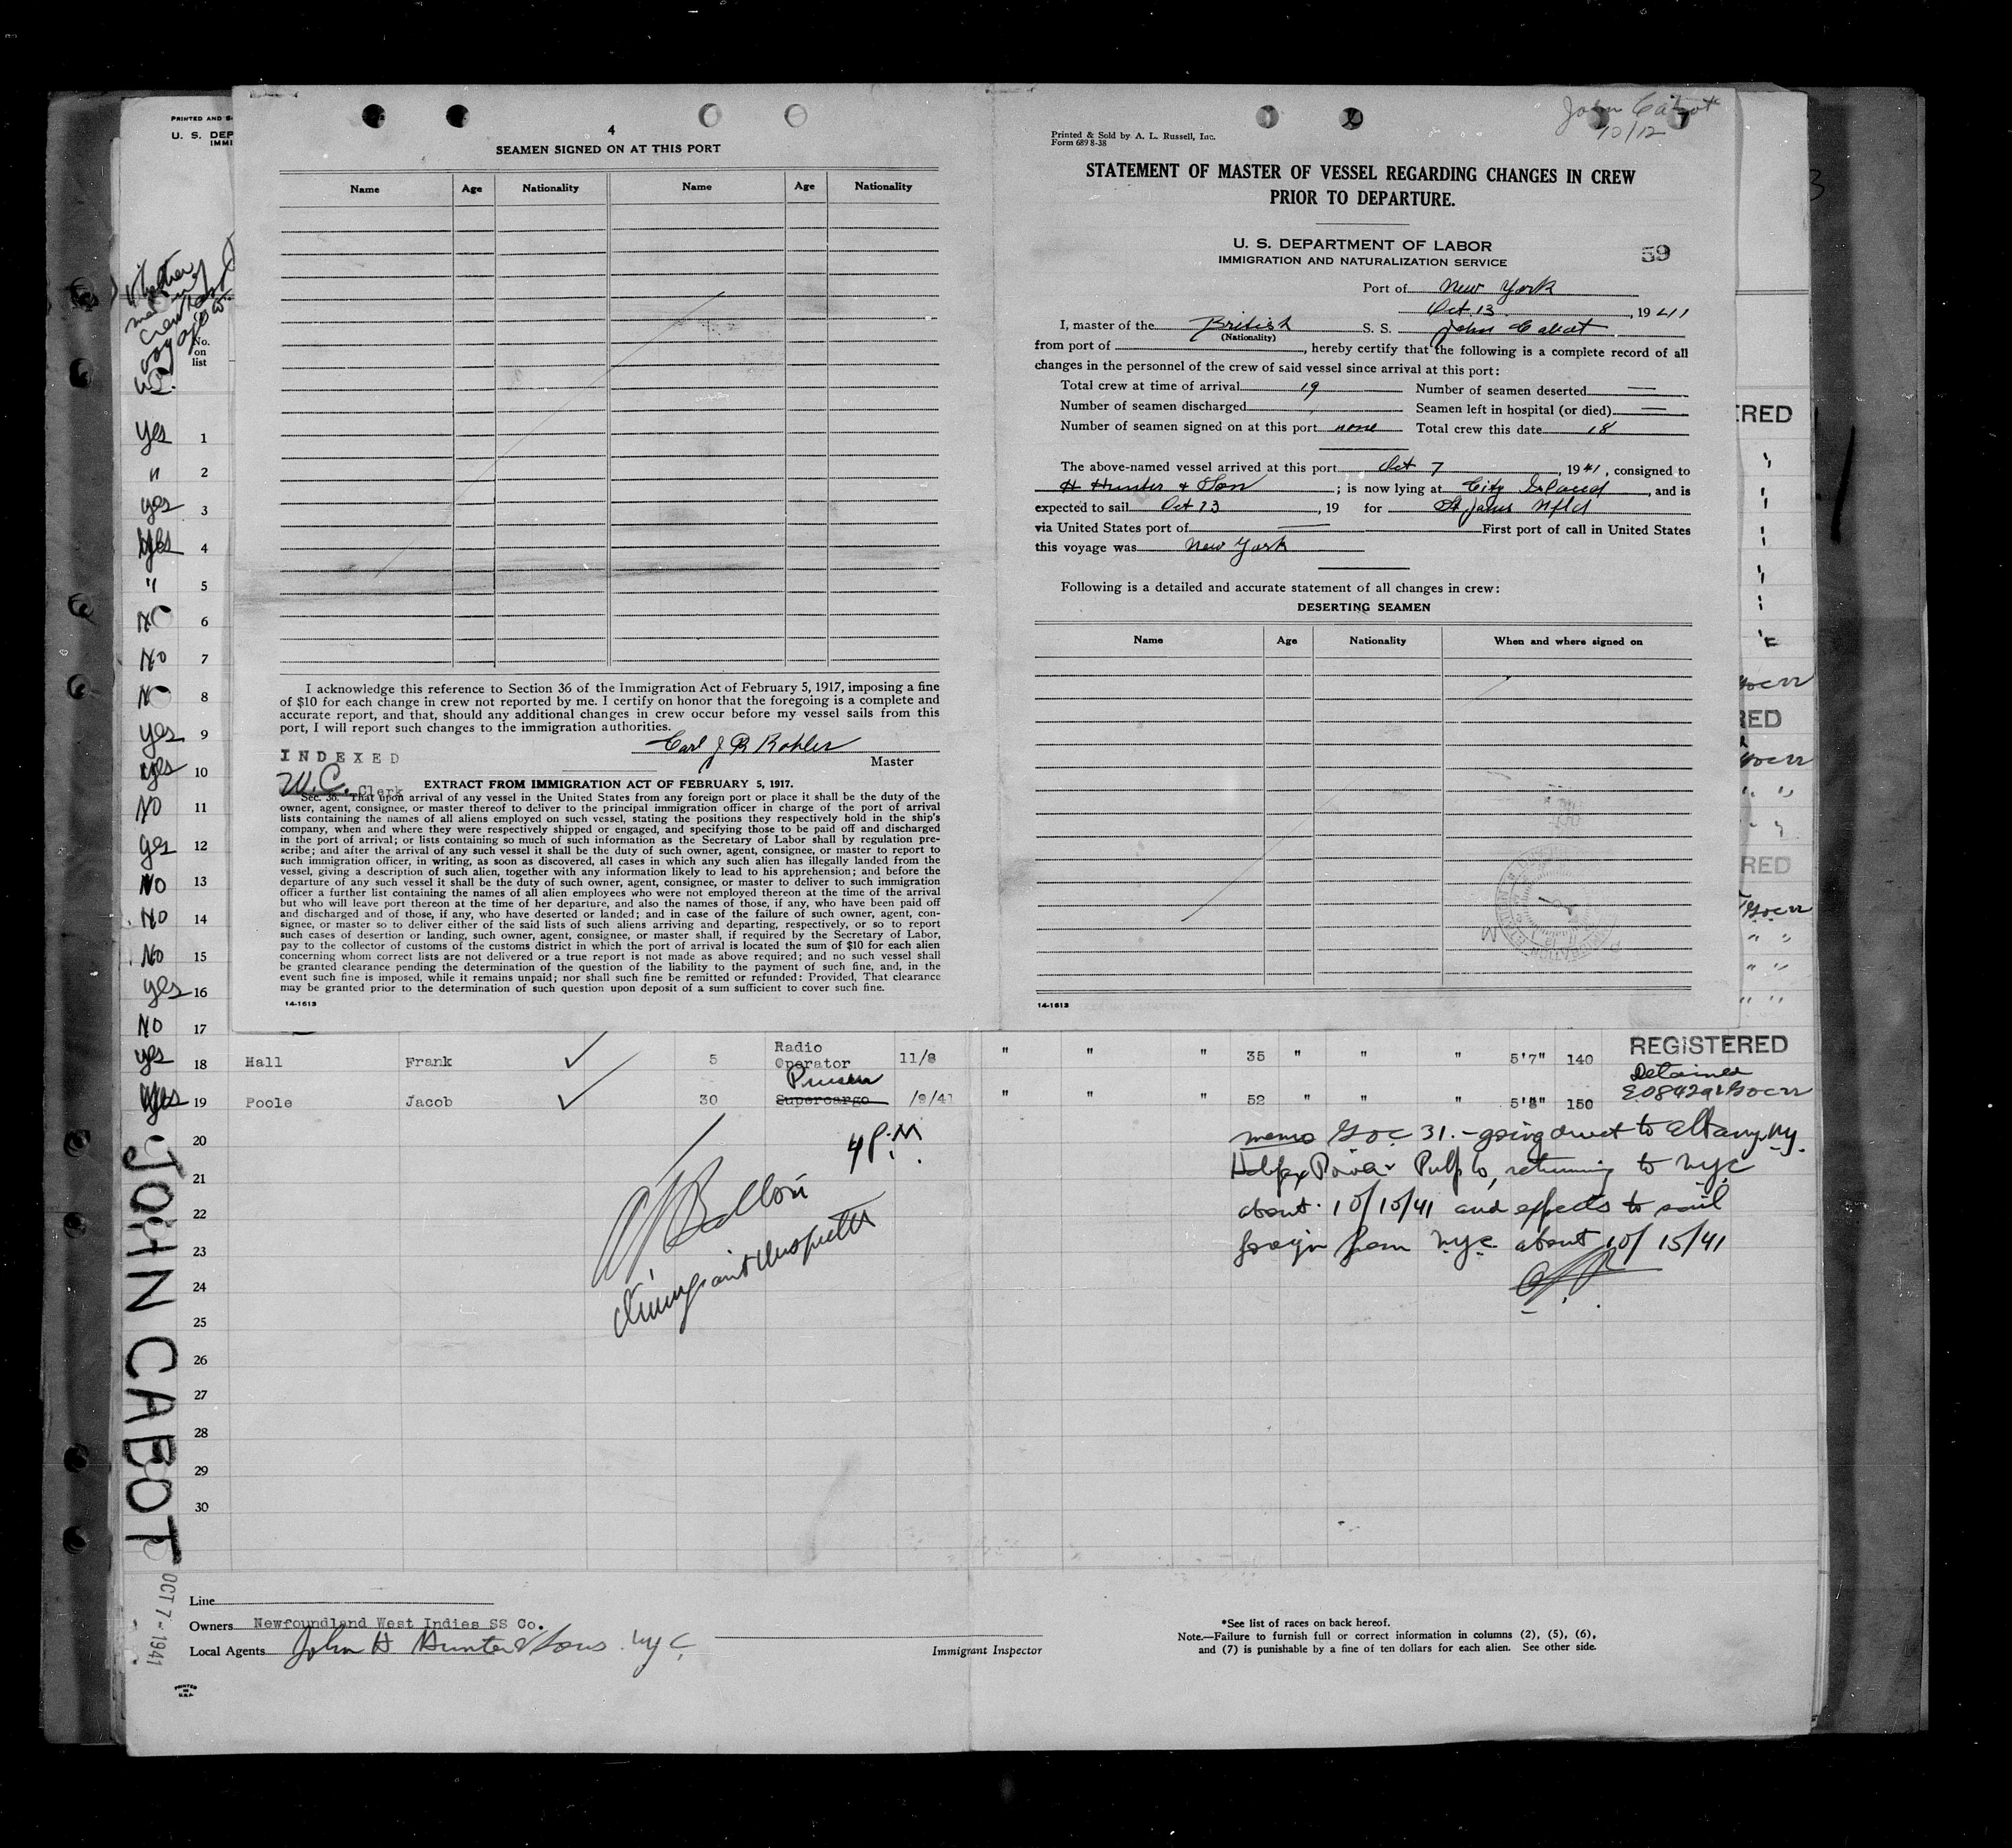 PRINTED AND S
U. S. DEP
IMMI
whether
crew last
voyage to
U.S.
No.
on
list
Yes 1
" 2
yes 3
yes 4
" 5
NO 6
NO 7
NO 8
yes 9
yes 10
NO 11
yes 12
NO 13
NO 14
NO 15
yes 16
NO 17
4
SEAMEN SIGNED ON AT THIS PORT
Name Age Nationality Name Age Nationality
I acknowledge this reference to Section 36 of the Immigration Act of February 5, 1917, imposing a fine
of $10 for each change in crew not reported by me. I certify on honor that the foregoing is a complete and
accurate report, and that, should any additional changes in crew occur before my vessel sails from this
port, I will report such changes to the immigration authorities.
Carl J R Kohler
Master
INDEXED
W.C. Clerk
EXTRACT FROM IMMIGRATION ACT OF FEBRUARY 5, 1917.
Sec. 36. That upon arrival of any vessel in the United States from any foreign port or place it shall be the duty of the
owner, agent, consignee, or master thereof to deliver to the principal immigration officer in charge of the port of arrival
lists containing the names of all aliens employed on such vessel, stating the positions they respectively hold in the ship's
company, when and where they were respectively shipped or engaged, and specifying those to be paid off and discharged
in the port of arrival; or lists containing so much of such information as the Secretary of Labor shall by regulation pre-
scribe; and after the arrival of any such vessel it shall be the duty of such owner, agent, consignee, or master to report to
such immigration officer, in writing, as soon as discovered, all cases in which any such alien has illegally landed from the
vessel, giving a description of such alien, together with any information likely to lead to his apprehension; and before the
departure of any such vessel it shall be the duty of such owner, agent, consignee, or master to deliver to such immigration
officer a further list containing the names of all alien employees who were not employed thereon at the time of the arrival
but who will leave port thereon at the time of her departure, and also the names of those, if any, who have been paid off
and discharged and of those, if any, who have deserted or landed; and in case of the failure of such owner, agent, con-
signee, or master so to deliver either of the said lists of such aliens arriving and departing, respectively, or so to report
such cases of desertion or landing, such owner, agent, consignee, or master shall, if required by the Secretary of Labor,
pay to the collector of customs of the customs district in which the port of arrival is located the sum of $10 for each alien
concerning whom correct lists are not delivered or a true report is not made as above required; and no such vessel shall
be granted clearance pending the determination of the question of the liability to the payment of such fine, and, in the
event such fine is imposed, while it remains unpaid; nor shall such fine be remitted or refunded: Provided, That clearance
may be granted prior to the determination of such question upon deposit of a sum sufficient to cover such fine.
14-1613
John Cabot
10/12
Printed & Sold by A. L. Russell, Inc.
Form 689 8-38
STATEMENT OF MASTER OF VESSEL REGARDING CHANGES IN CREW
PRIOR TO DEPARTURE.
U. S. DEPARTMENT OF LABOR
IMMIGRATION AND NATURALIZATION SERVICE
59
Port of New York
Oct. 13, 1941
I, master of the British S. S. John Cabot
(Nationality)
from port of , hereby certify that the following is a complete record of all
changes in the personnel of the crew of said vessel since arrival at this port:
Total crew at time of arrival 19 Number of seamen deserted —
Number of seamen discharged Seamen left in hospital (or died) —
Number of seamen signed on at this port none Total crew this date 18
The above-named vessel arrived at this port Oct 7, 1941, consigned to
H Hunter & Son ; is now lying at City Island, and is
expected to sail Oct 13, 19 for St Johns Nfld
via United States port of — First port of call in United States
this voyage was New York
Following is a detailed and accurate statement of all changes in crew:
DESERTING SEAMEN
Name Age Nationality When and where signed on
14-1613
RED
RED
RED
18 yes Hall Frank 5 Radio Operator 11/8 " " " 35 " " " 5'7" 140 REGISTERED
19 yes Poole Jacob 30 Supercargo Purser /9/41 " " " 52 " " " 5'8" 150 Detained
20
21
22
23
24
25
26
27
28
29
30
4 P.M.
Immigrant Inspector
memo 31. - going direct to Albany NY.
Power Pulp Co, returning to NYC
about 10/15/41 and expects to sail
foreign from NYC about 10/15/41
JOHN CABOT
OCT 7 - 1941
Line
Owners Newfoundland West Indies SS Co.
Local Agents John H Hunter & Sons. NYC.
Immigrant Inspector
*See list of races on back hereof.
Note.—Failure to furnish full or correct information in columns (2), (5), (6),
and (7) is punishable by a fine of ten dollars for each alien. See other side.
PRINTED
IN
U.S.A.